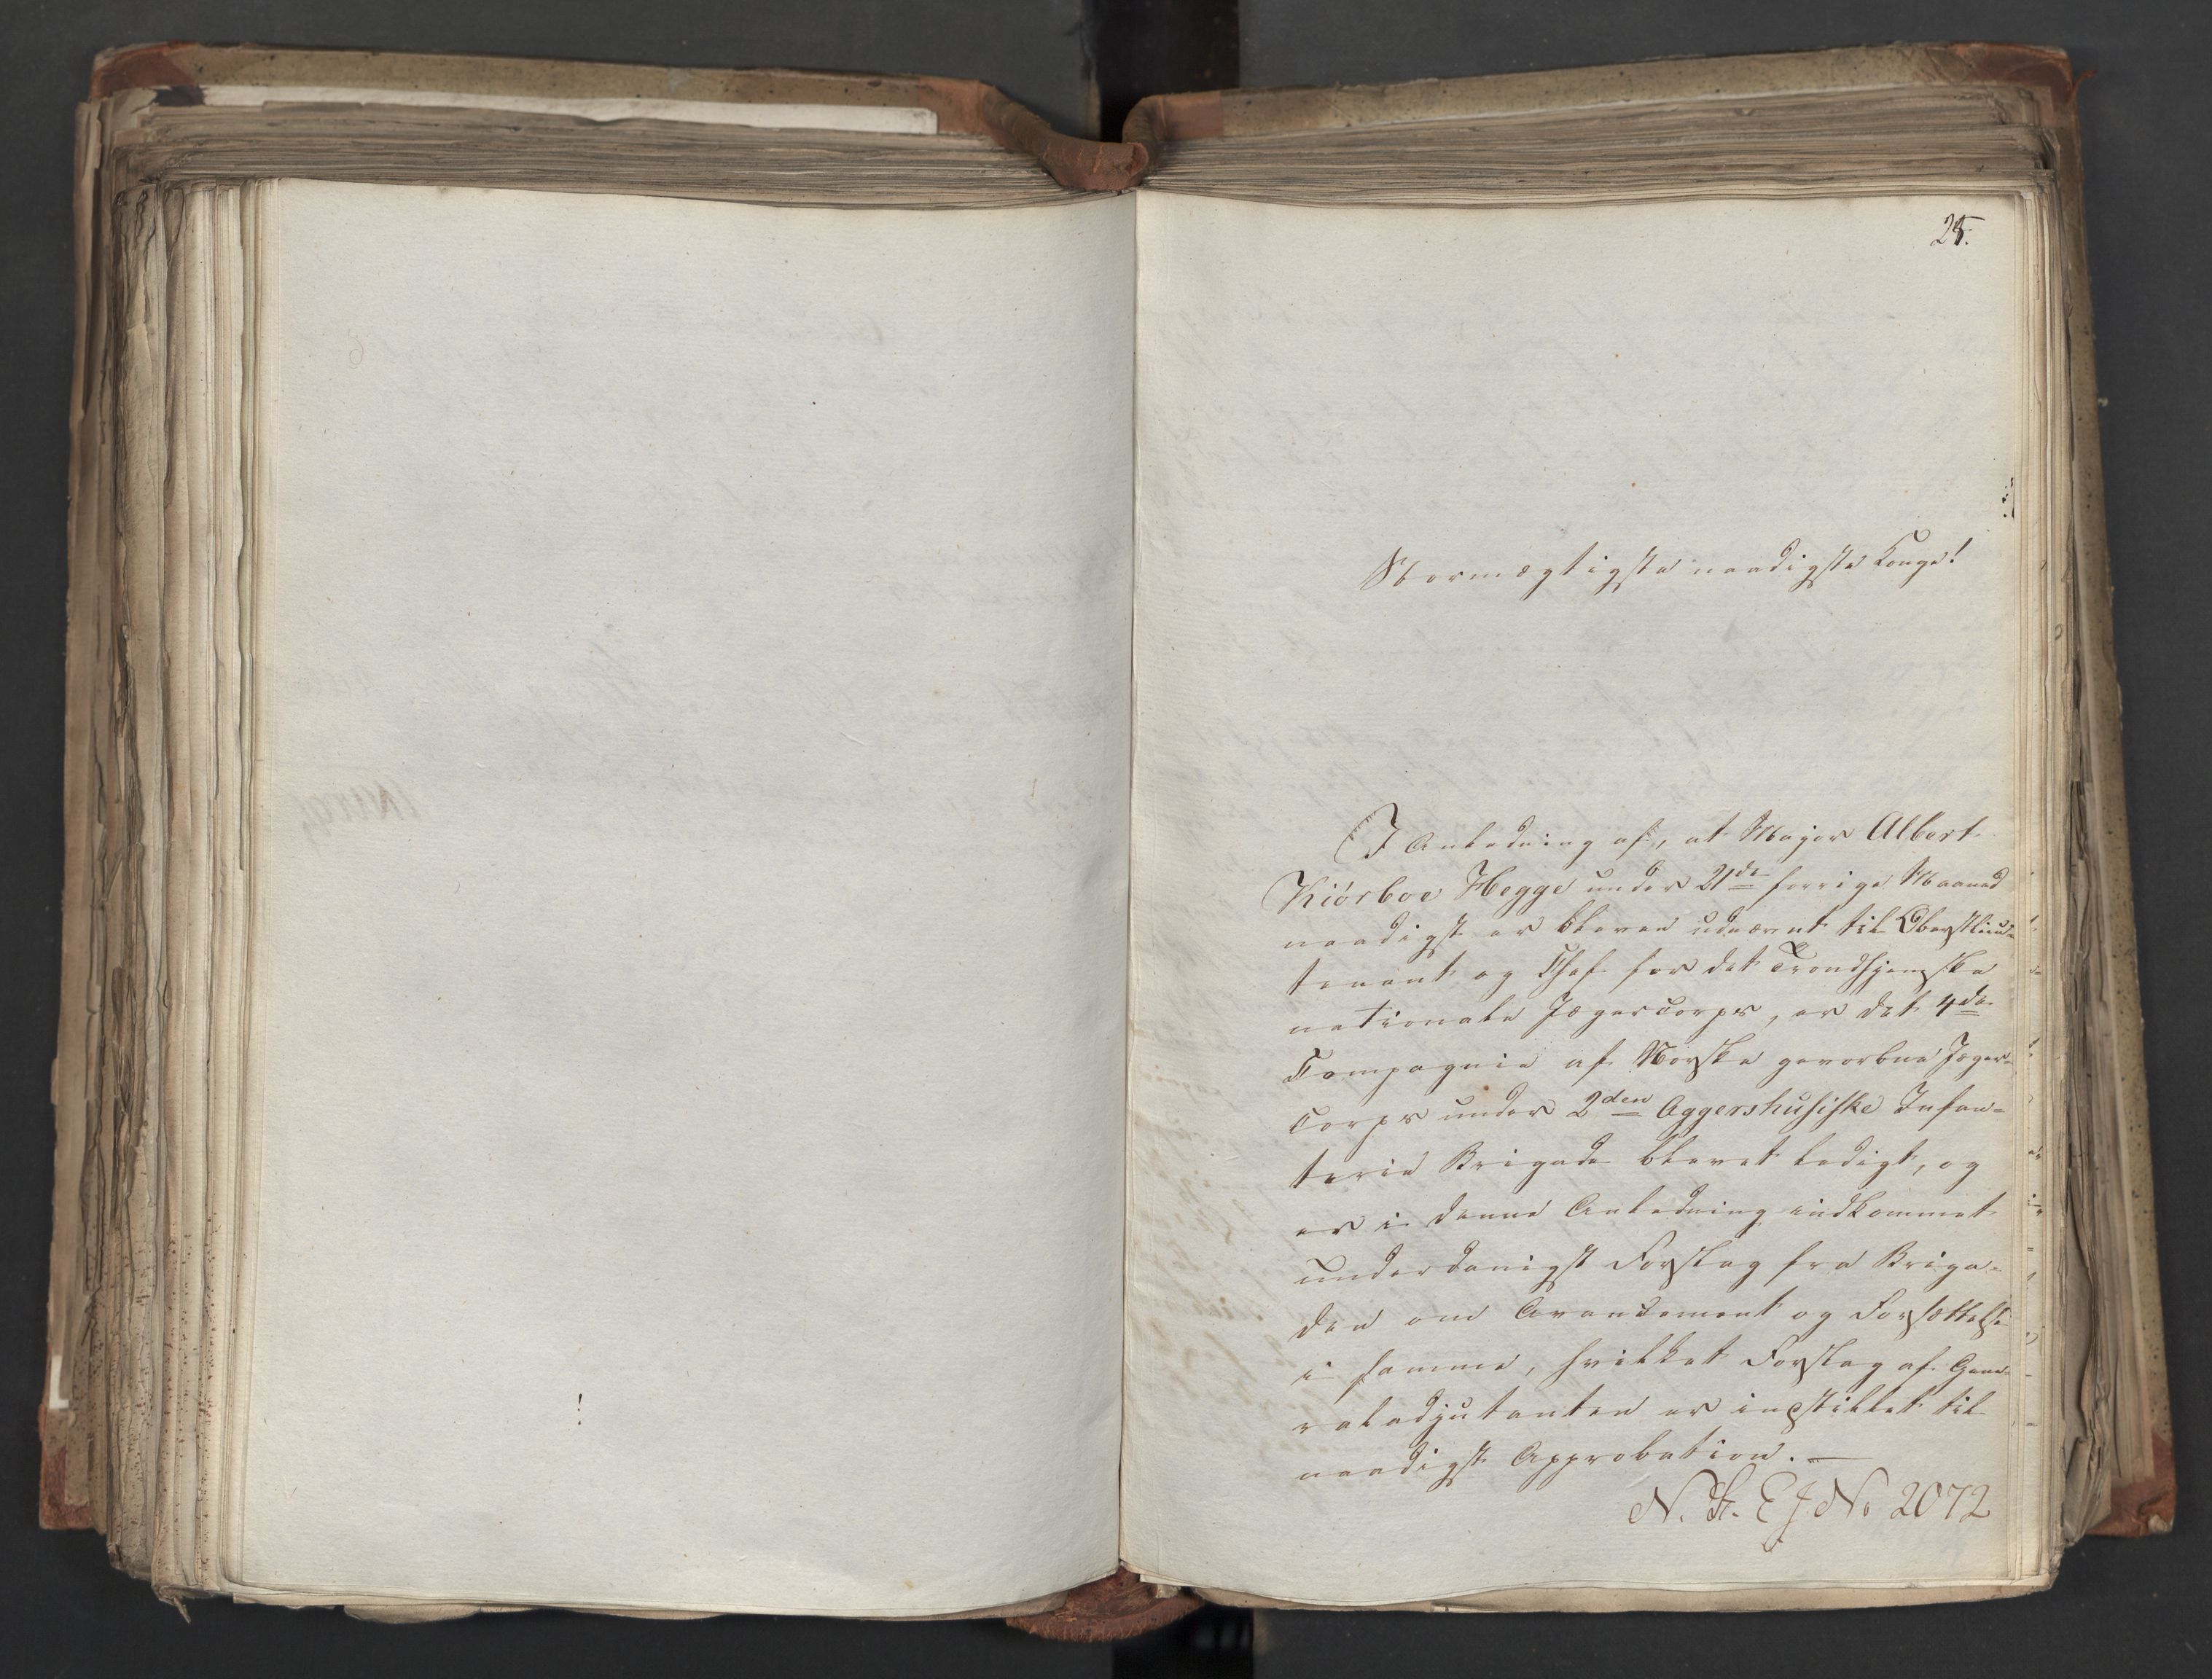 25.
Stormægtigste naadigste Konge!
I Anledning af, at Major Albert
Kiörboe Hegge under 21de forrige Maaned
naadigst er bleven udnævnt til Oberstlieu-
tenant og Chef for det Trondhjemske
nationale Jægercorps, er det 4de
Compagnie af Norske gevorbne Jæger-
Corps under 2den Aggershusiske Infan=
terie Brigade blevet ledigt, og
er i denne Anledning indkommet
underdanigst Forslag fra Briga-
den om Avancement og Forsættelse
i samme, hvilket Forslag af Gene-
raladjutanten er instillet til
naadigst Approbation. —
N. St. E J No 2072